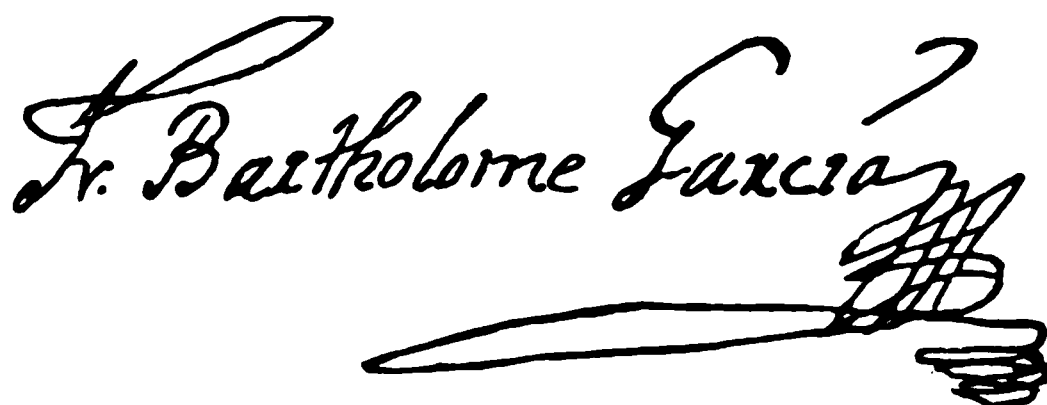 Fr. Bartholome Garcia